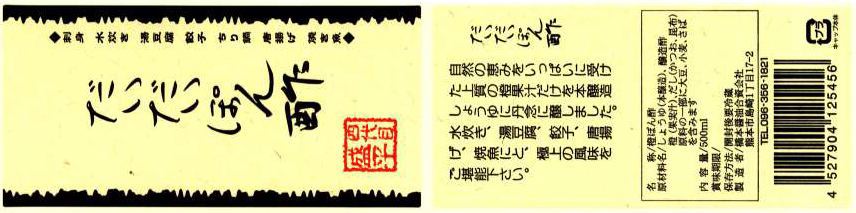 ◆刺身 水炊き 湯豆腐 餃子 ちり鍋 唐揚げ 焼き魚◆
だいだいぽん酢
四代目
盛平
だいだいぽん酢
自然の恵みをいっぱいに受け
た上質の橙果汁だけを本醸造
しょうゆに丹念に醸しました。
水炊き、湯豆腐、餃子、唐揚
げ、焼魚にと、極上の風味を
ご堪能下さい。
名称/橙ぽん酢
原材料名/しょうゆ(本醸造)、醸造酢
橙(果実汁)、だし(かつお、昆布)
原料の一部に大豆、小麦、さば
を含みます
内容量/500ml
賞味期限/
保存方法/開封後要冷蔵
製造者/橋本醤油合資会社
熊本市島崎1丁目17-2
TEL.096-356-1821
プラ
キャップ本体
4 527904 125456